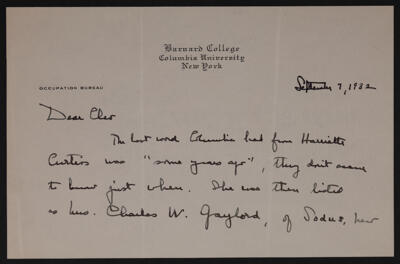 Barnard College
Columbia University
New York
OCCUPATION BUREAU
September 7, 1932
Dear Cleo
The last word Columbia had from Harriette
Curtiss was "some years ago", they don't seem
to know just when. She was then listed
as Mrs. Charles W. Gaylord, of Sodus, New